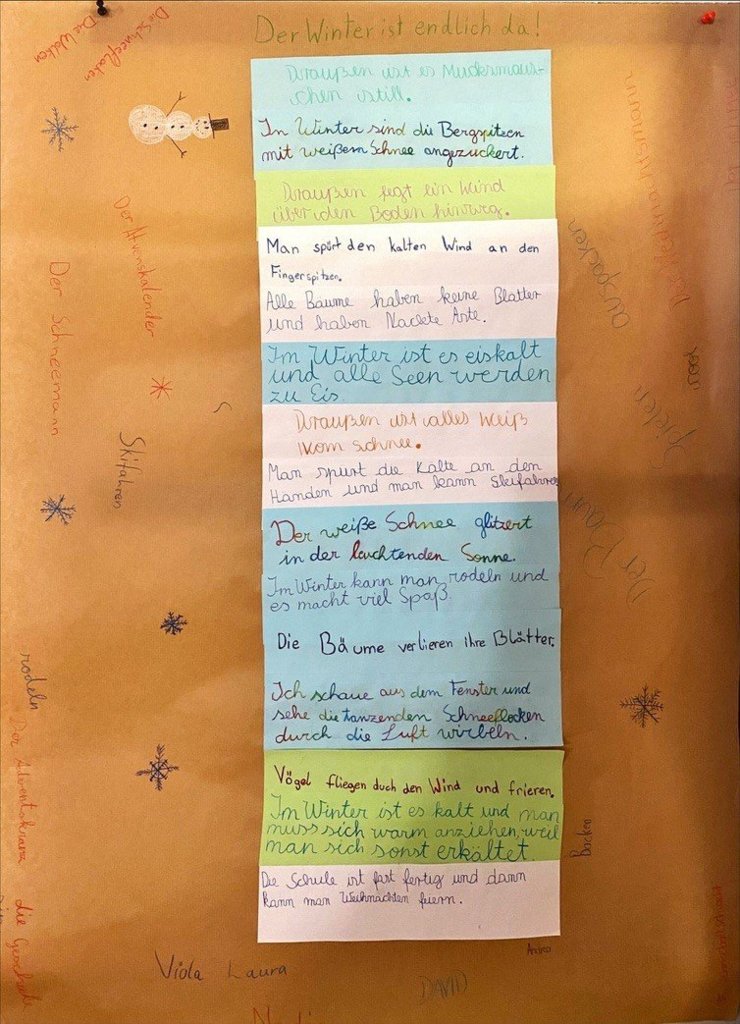 Der Winter ist endlich da!
Draußen ist es Mucksmaus-
chen still.
Im Winter sind die Bergspitzen
mit weißem Schnee angezuckert.
Draußen fegt ein Wind
über den Boden hinweg.
Man spürt den kalten Wind an den
Fingerspitzen.
Alle Bäume haben keine Blätter
und haben Nackte Äste.
Im Winter ist es eiskalt
und alle Seen werden
zu Eis.
Draußen ist alles weiß
vom schnee.
Man spürt die Kälte an den
Händen und man kann Skifahren
Der weiße Schnee glitzert
in der leuchtenden Sonne.
Im Winter kann man rodeln und
es macht viel Spaß.
Die Bäume verlieren ihre Blätter.
Ich schaue aus dem Fenster und
sehe die tanzenden Schneeflocken
durch die Luft wirbeln.
Vögel fliegen duch den Wind und frieren.
Im Winter ist es kalt und man
muss sich warm anziehen, weil
man sich sonst erkältet.
Die Schule ist fast fertig und dann
kann man Weihnachten feiern.
Die Schneeflocken
Die Wolken
Der Schneemann
Skifahren
rodeln
Der Adventskranz
auspacken
Spielen
Der Baum
Backen
Viola Laura
DAVID
Andrea